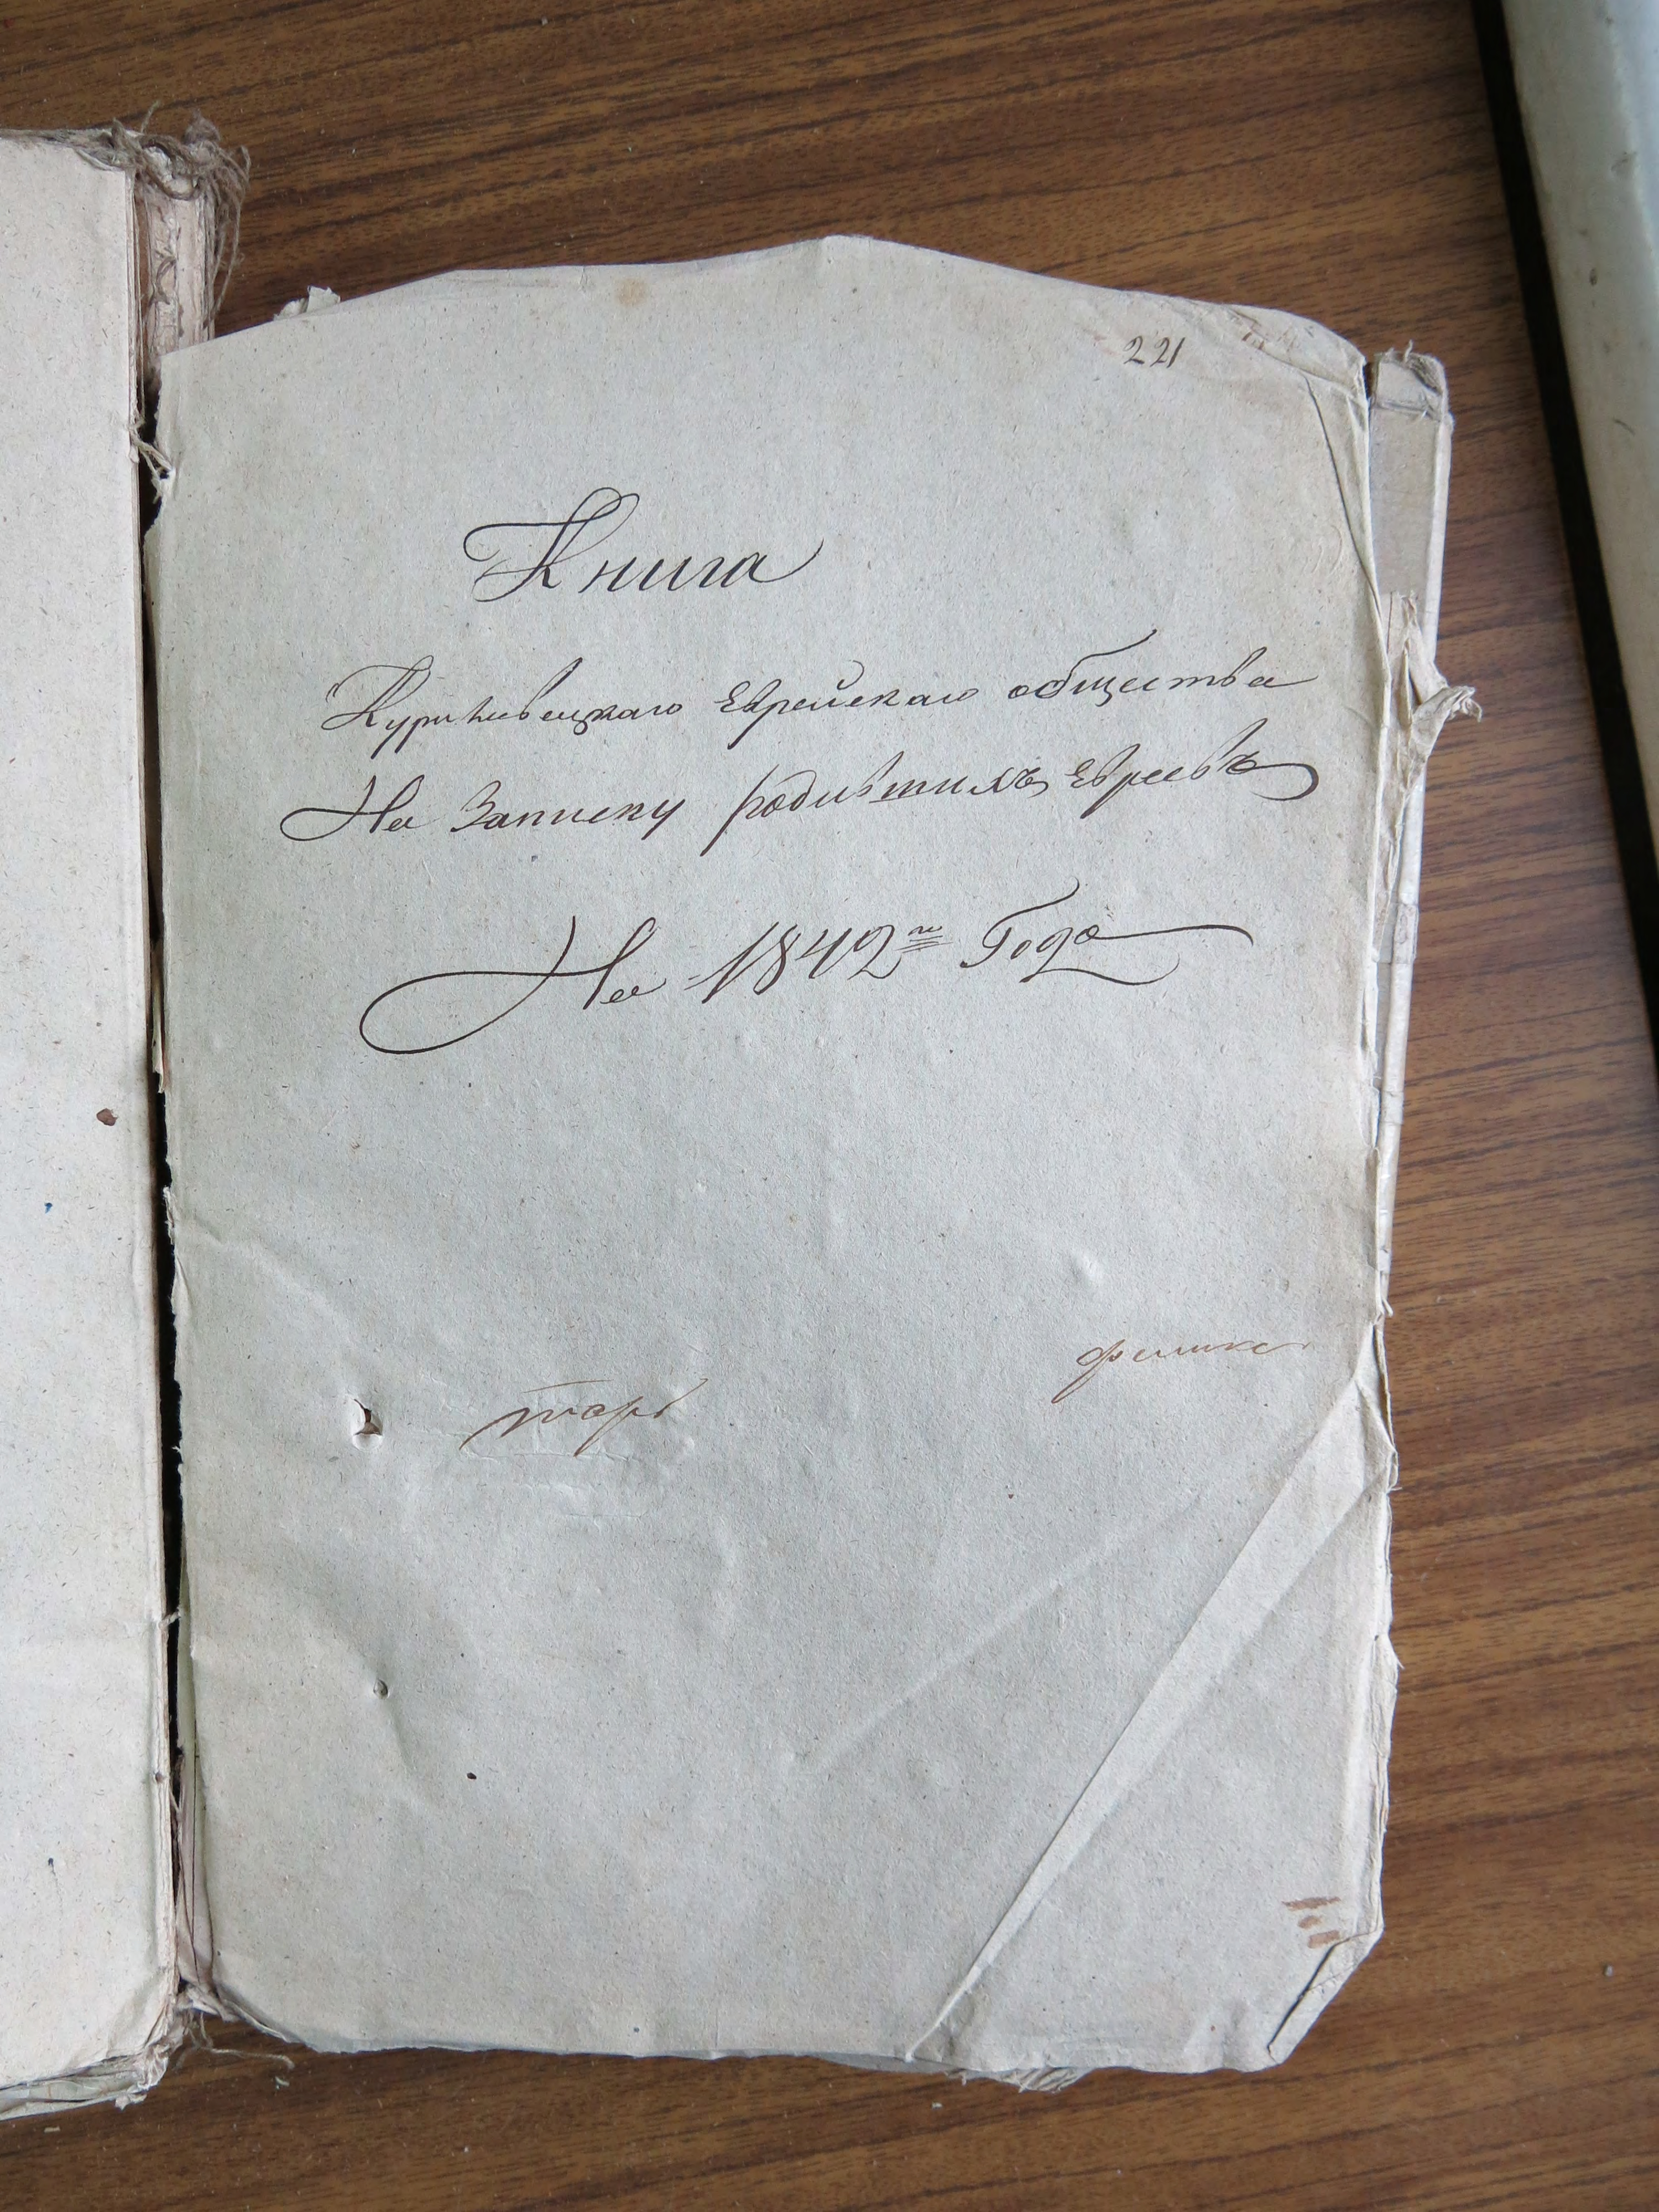 221
Книга
Куриловецкаго Еврейскаго общества
На Записку родившихъ Евреевъ
На 1842го Года